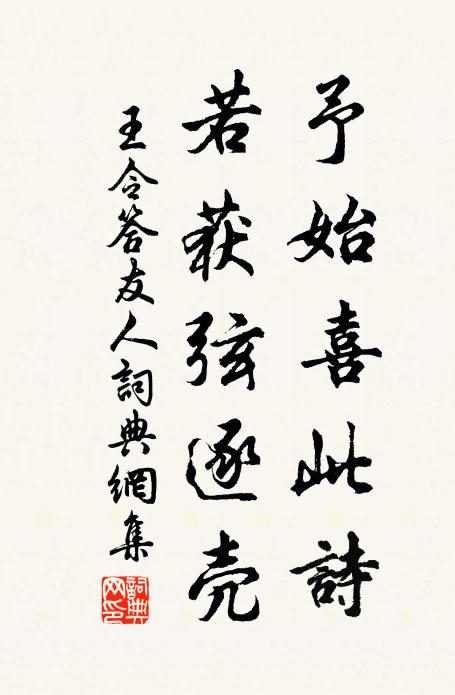 予始喜此詩
若获弦逐壳
王令答友人詞典網集
詞典網印